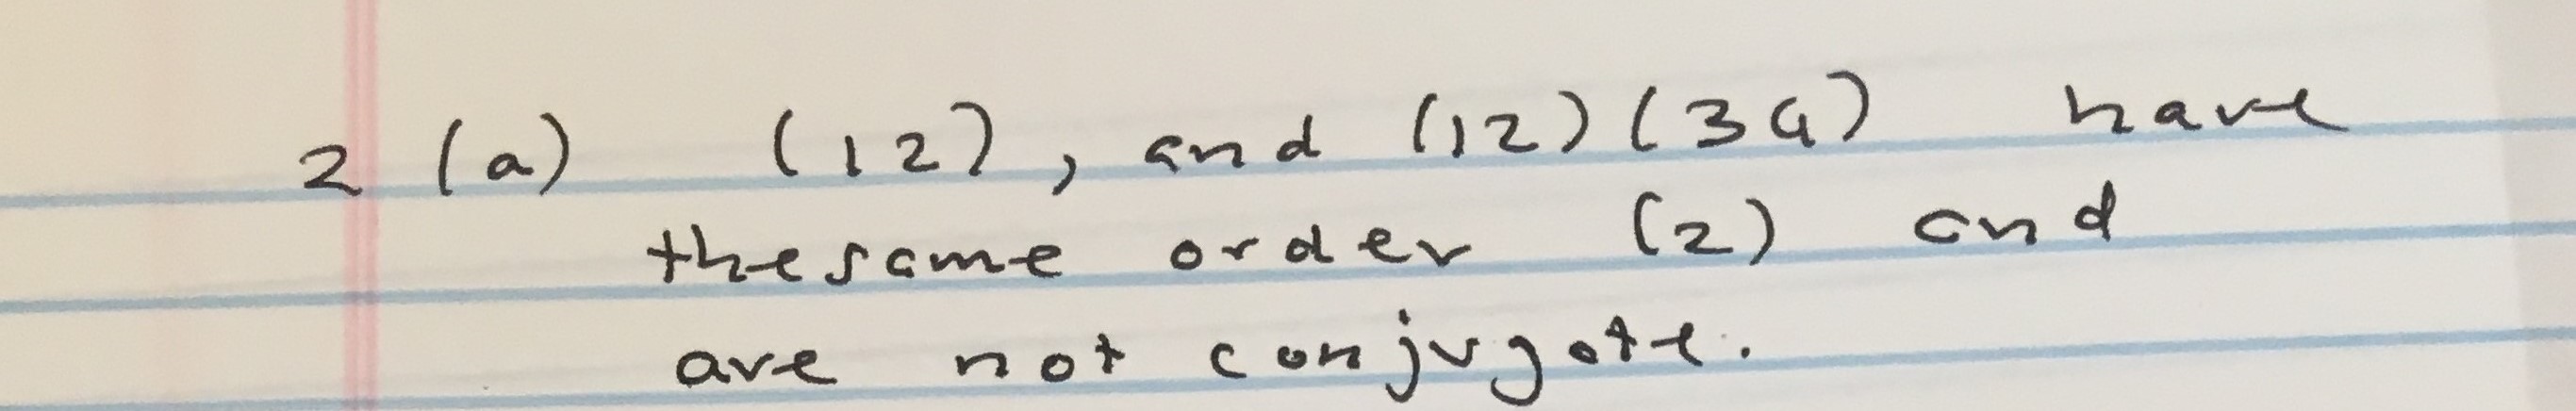 2 (a) (12), and (12)(34) have
thesame order (2) and
are not conjugate.